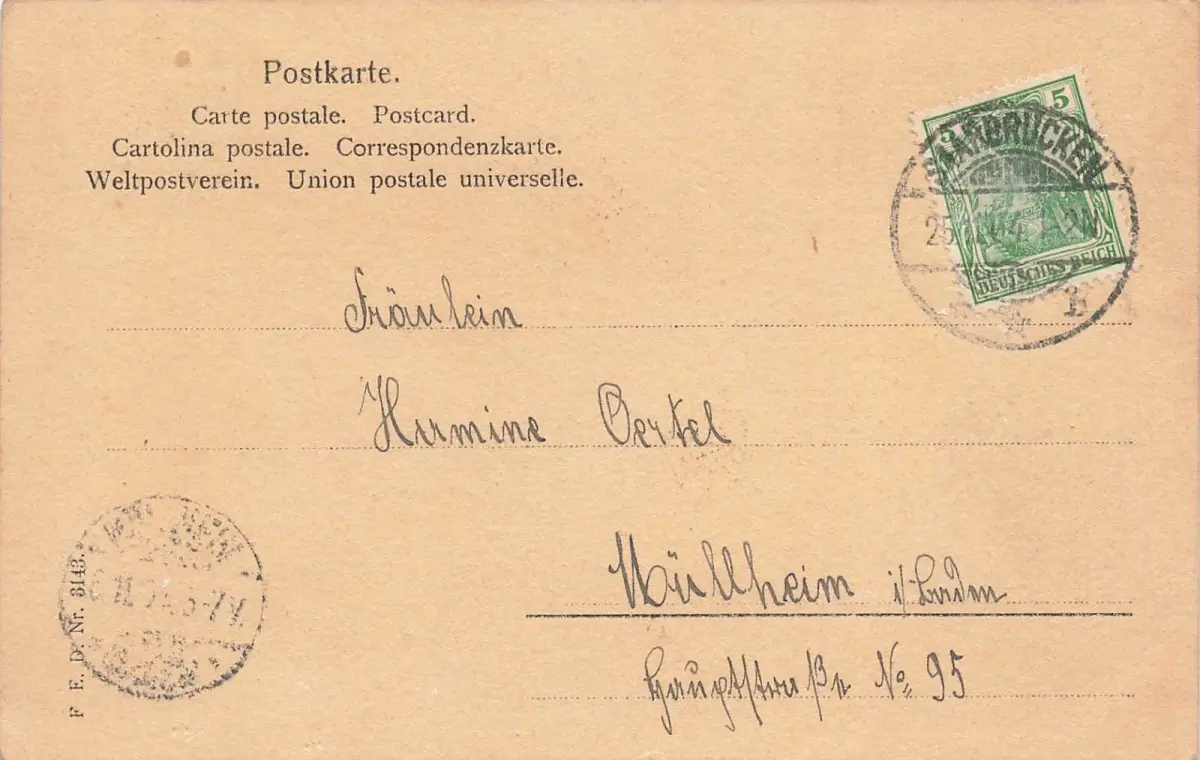 Postkarte.
Carte postale. Postcard.
Cartolina postale. Correspondenzkarte.
Weltpostverein. Union postale universelle.
5
SAARBRÜCKEN
25
DEUTSCHES REICH
Fräulein
Hermine Oertel
Müllheim i/Baden
Hauptstraße No 95
F. E. D. Nr. 3143.